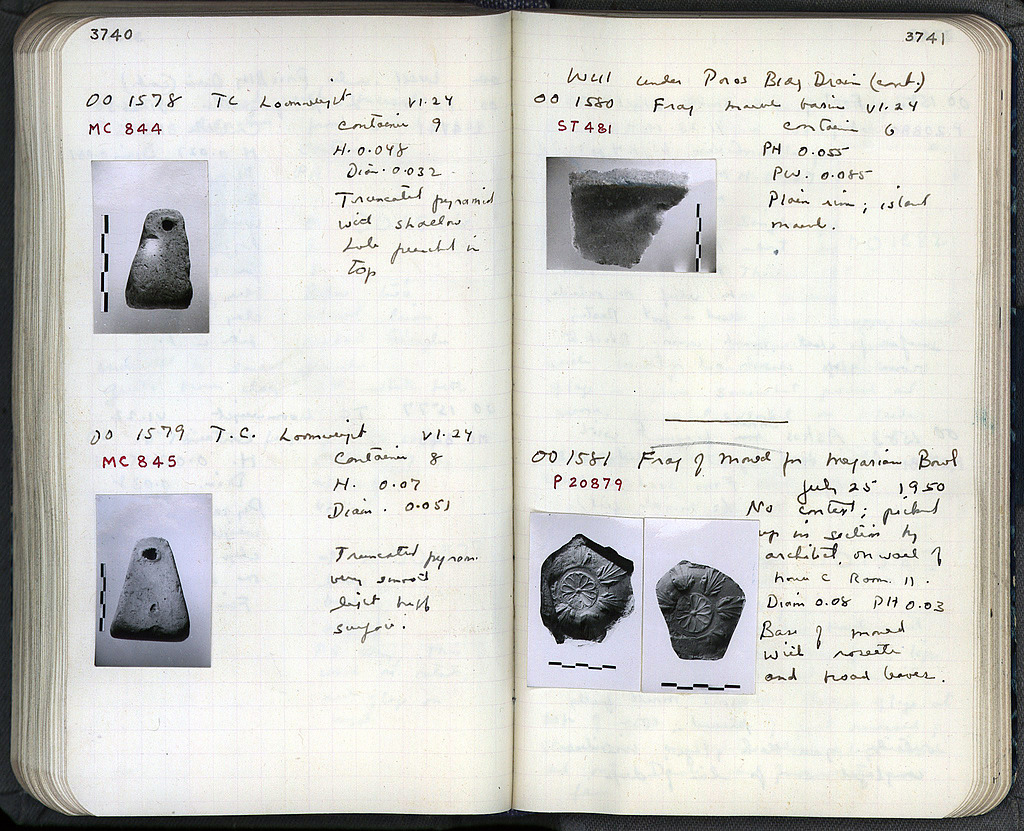 3740
OO 1578 TC Loomweight VI.24
MC 844
Container 9
H. 0.048
Diam. 0.032
Truncated pyramid
with shallow
hole punched in
top
OO 1579 T.C. Loomweight VI.24
MC 845
Container 8
H. 0.07
Diam. 0.051
Truncated pyram.
very smooth
light buff
surface.
3741
Well under Poros Bldg Drain (cont.)
OO 1580 Frag marble basin VI.24
ST 481
Container 6
PH 0.055
PW. 0.085
Plain rim; island
marb.
OO 1581 Frag of mould for Megarian Bowl
P 20879
July 25 1950
No context; picked
up in section by
architect, on wall of
House C Room 11.
Diam 0.08 PH 0.03
Base of mould
with rosette
and frond leaves.